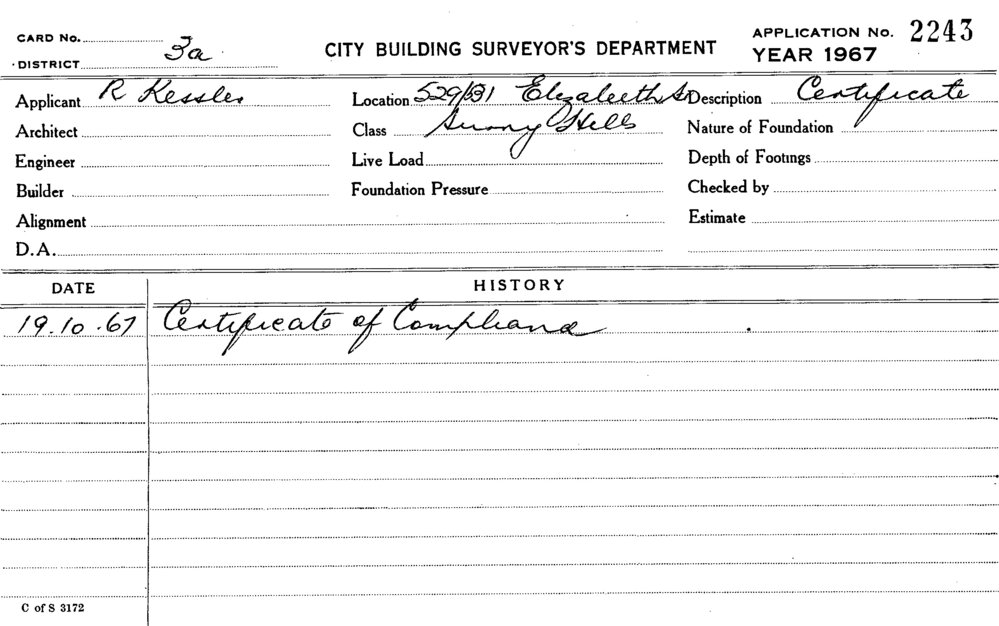 CARD No.
DISTRICT 3a
CITY BUILDING SURVEYOR'S DEPARTMENT
APPLICATION No. 2243
YEAR 1967
Applicant R Kessler
Location 529/531 Elizabeth St
Description Certificate
Architect
Class Surry Hills
Nature of Foundation
Engineer
Live Load
Depth of Footings
Builder
Foundation Pressure
Checked by
Alignment
Estimate
D.A.
DATE
HISTORY
19.10.67 Certificate of Compliance
C of S 3172